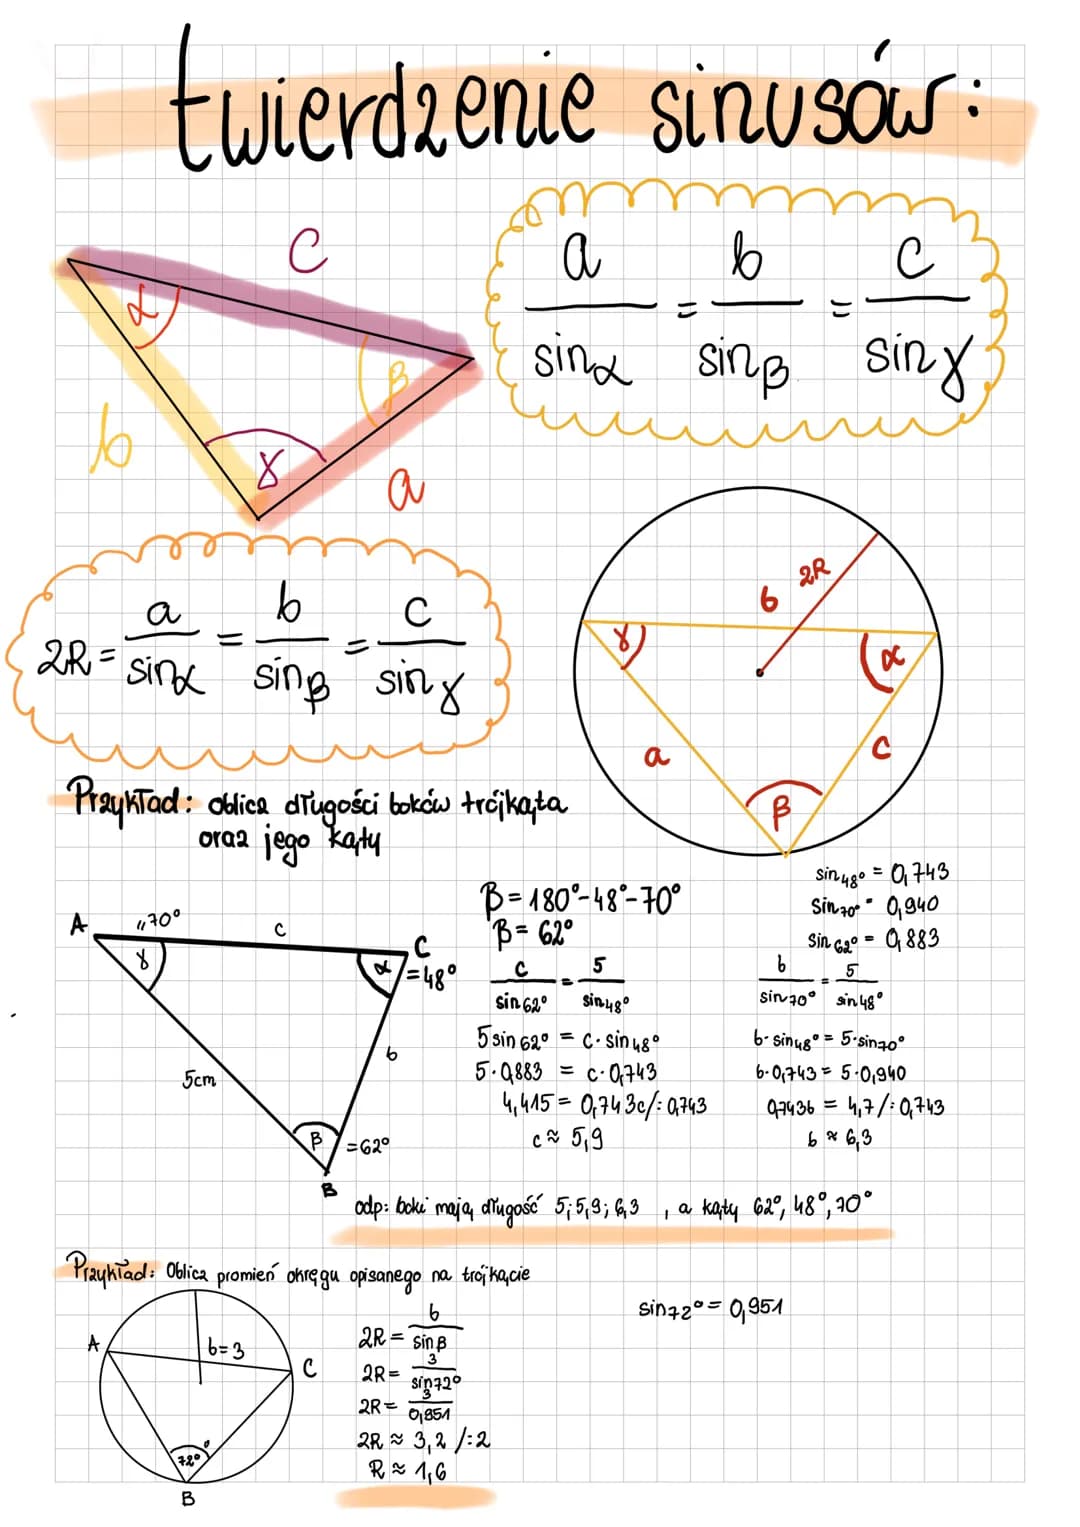 twierdzenie sinusów:
c
α
β
b
γ
a
a/sinα = b/sinβ = c/sinγ
2R = a/sinα = b/sinβ = c/sinγ
b 2R
γ
α
a
c
β
Przykład: oblicz długości boków trójkąta
oraz jego kąty
A
70°
c
C
γ
α
=48°
b
5cm
β
=62°
B
β=180°-48°-70°
β=62°
c/sin62° = 5/sin48°
5sin62° = c·sin48°
5·0,883 = c·0,743
4,415 = 0,743c/:0,743
c≈5,9
sin48° = 0,743
sin70° = 0,940
sin62° = 0,883
b/sin70° = 5/sin48°
b·sin48° = 5·sin70°
b·0,743 = 5·0,940
0,743b = 4,7/:0,743
b≈6,3
odp: boki mają długość 5;5,9;6,3 , a kąty 62°,48°,70°
Przykład: Oblicz promień okręgu opisanego na trójkącie
A
b=3
C
72°
B
2R = b/sinβ
2R = 3/sin72°
2R = 3/0,951
2R ≈ 3,2 /:2
R ≈ 1,6
sin72° = 0,951